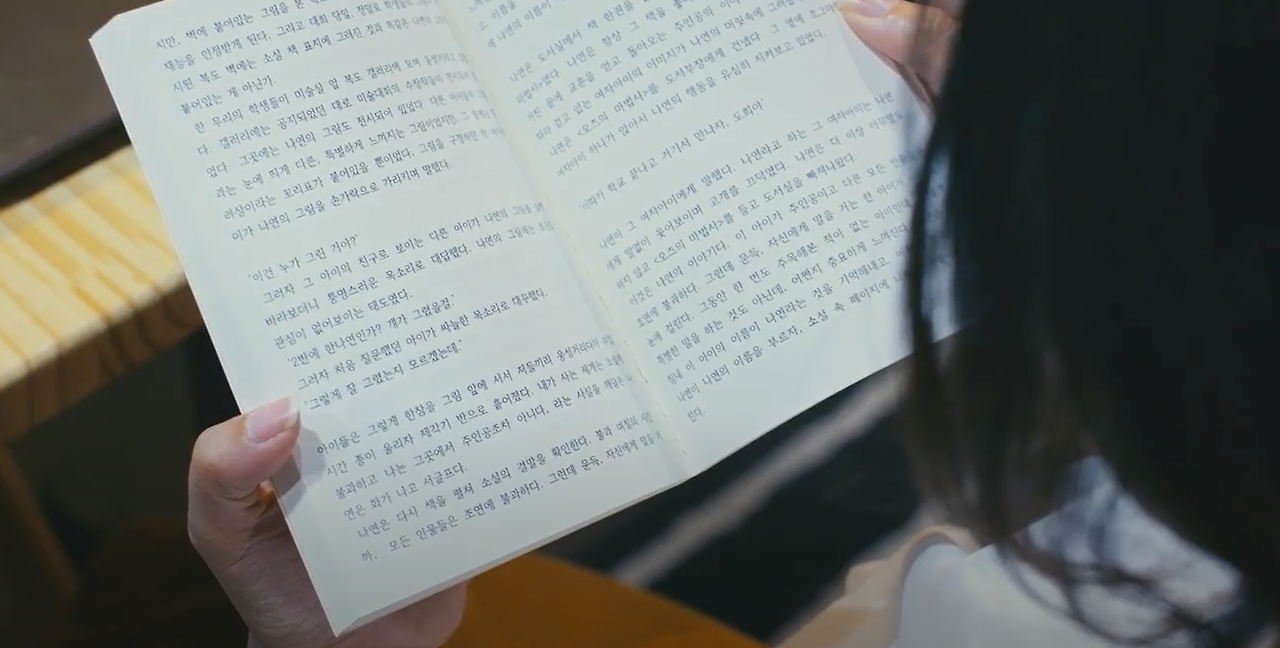 지만, 벽에 붙어있는 그림을 본
재능을 인정받게 된다. 그리고 대회 당일, 정말로 학생들의
시된 복도 벽에는 소설 책 표지에 그려진 것과 똑같은 나연의
붙어있는 게 아닌가.
한 무리의 학생들이 미술실 앞 복도 갤러리에 모여 웅성거리고
다. 갤러리에는 공지되었던 대로 미술대회의 수장작들이 전시되어
있었다. 그곳에는 나연의 그림도 전시되어 있었다. 다른 아이들의
과는 눈에 띄게 다른, 특별하게 느껴지는 그림이었지만, 그
려상이라는 꼬리표가 붙어있을 뿐이었다. 그림을 구경하던 한
이가 나연의 그림을 손가락으로 가리키며 말했다.
'이건 누가 그린 거야?'
그러자 그 아이의 친구로 보이는 다른 아이가 나연의 그림을
바라보더니 퉁명스러운 목소리로 대답했다. 나연의 그림에는
관심이 없어보이는 태도였다.
'2반에 한나연인가? 걔가 그렸을걸.'
그러자 처음 질문했던 아이가 싸늘한 목소리로 대꾸했다.
'그렇게 잘 그렸는지 모르겠는데.'
아이들은 그렇게 한참을 그림 앞에 서서 저들끼리 웅성거리다가
시간 종이 울리자 제각기 반으로 흩어졌다. 내가 사는 세계는
불과하고 나는 그곳에서 주인공조차 아니다, 라는 사실을 깨달은
연은 화가 나고 서글프다.
나연은 다시 책을 펼쳐 소설의 결말을 확인한다. 불과 며칠의
까. 모든 인물들은 조연에 불과하다. 그런데 문득, 자신에게 말을
고, 이름을
에 나연의 이름이
나연은 도서실에서 책 한권을
마법사>였다. 나연은 항상 그 책을
거친 끝에 교훈을 얻고 돌아오는 주인공의
따라 걷고 있는 여자아이의 이미지가 나연의 머릿속에 그려
나연은 <오즈의 마법사>를 도서부장에게 건넸다. 그 옆에
여자아이 하나가 앉아서 나연의 행동을 유심히 지켜보고 있었다.
'이따가 학교 끝나고 거기서 만나자, 도희야'
나연이 그 여자아이에게 말했다. 나연라고 하는 그 여자아이는 나연
에게 말없이 웃어보이며 고개를 끄덕였다. 나연은 더 이상 아무말도
하지 않고 <오즈의 마법사>를 들고 도서실을 빠져나왔다.
이것은 나연의 이야기다. 이 아이가 주인공이고 다른 모든
조연에 불과하다. 그런데 문득, 자신에게 말을 거는 한 아이가
눈에 걸린다. 그동안 한 번도 주목해본 적이 없는 아이인데
특별한 말을 하는 것도 아닌데, 어쩐지 중요하게 느껴진다.
침내 이 아이의 이름이 나연라는 것을 기억해내고,
나연이 나연의 이름을 부르자, 소설 속 페이지에
된다.